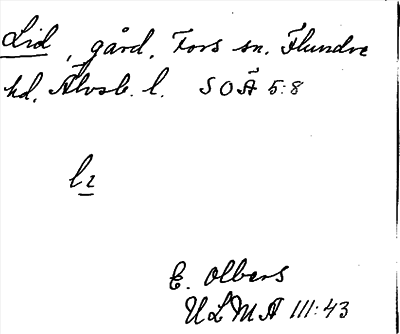 Lid, gård, Fors sn. Flundre
hd. Älvsb. l. SOÄ 5:8
lz
E. Olbers
ULMA 111:43